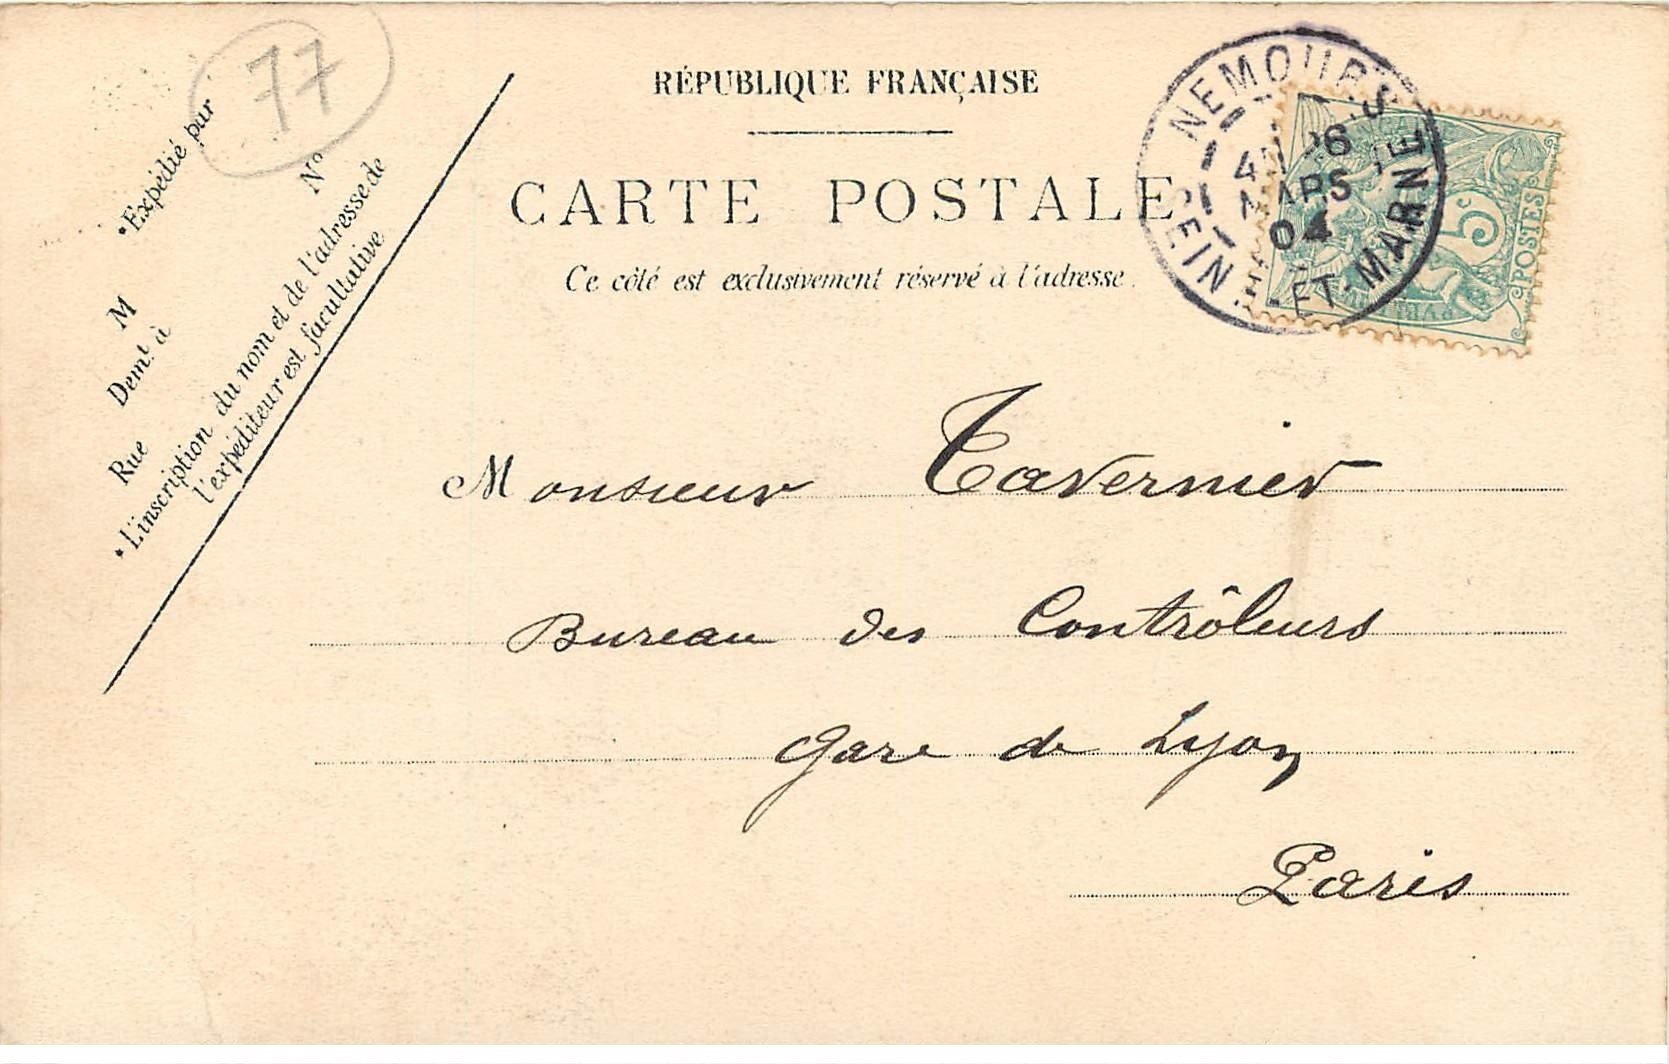 77
RÉPUBLIQUE FRANÇAISE
CARTE POSTALE
Ce côté est exclusivement réservé à l'adresse.
*Expédié par
M
Demt. à
Rue N°
*L'inscription du nom et de l'adresse de
l'expéditeur est facultative
NEMOURS
MARS
04
SEINE-ET-MARNE
5c
POSTES
Monsieur Tavernier
Bureau des Contrôleurs
Gare de Lyon
Paris